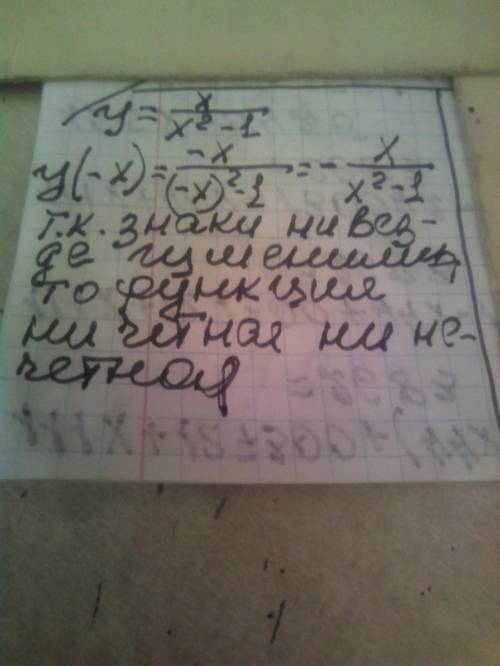 y = x/(x² - 1)
y(-x) = -x/((-x)² - 1) = - x/(x² - 1)
т.к. знаки ни вез-
де изменились,
то функция
ни чётная ни не-
чётная